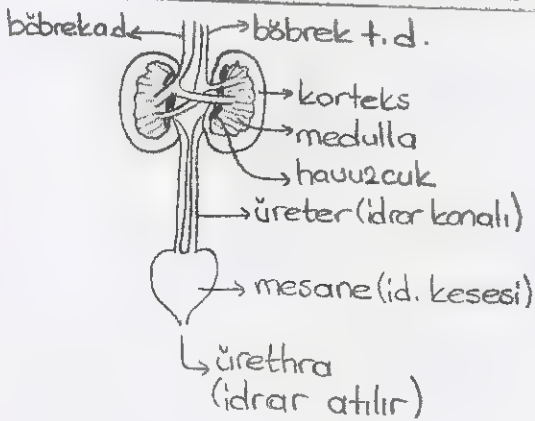 böbrek a.d.
böbrek t.d.
korteks
medulla
havuzcuk
üreter (idrar kanalı)
mesane (id. kesesi)
ürethra
(idrar atılır)